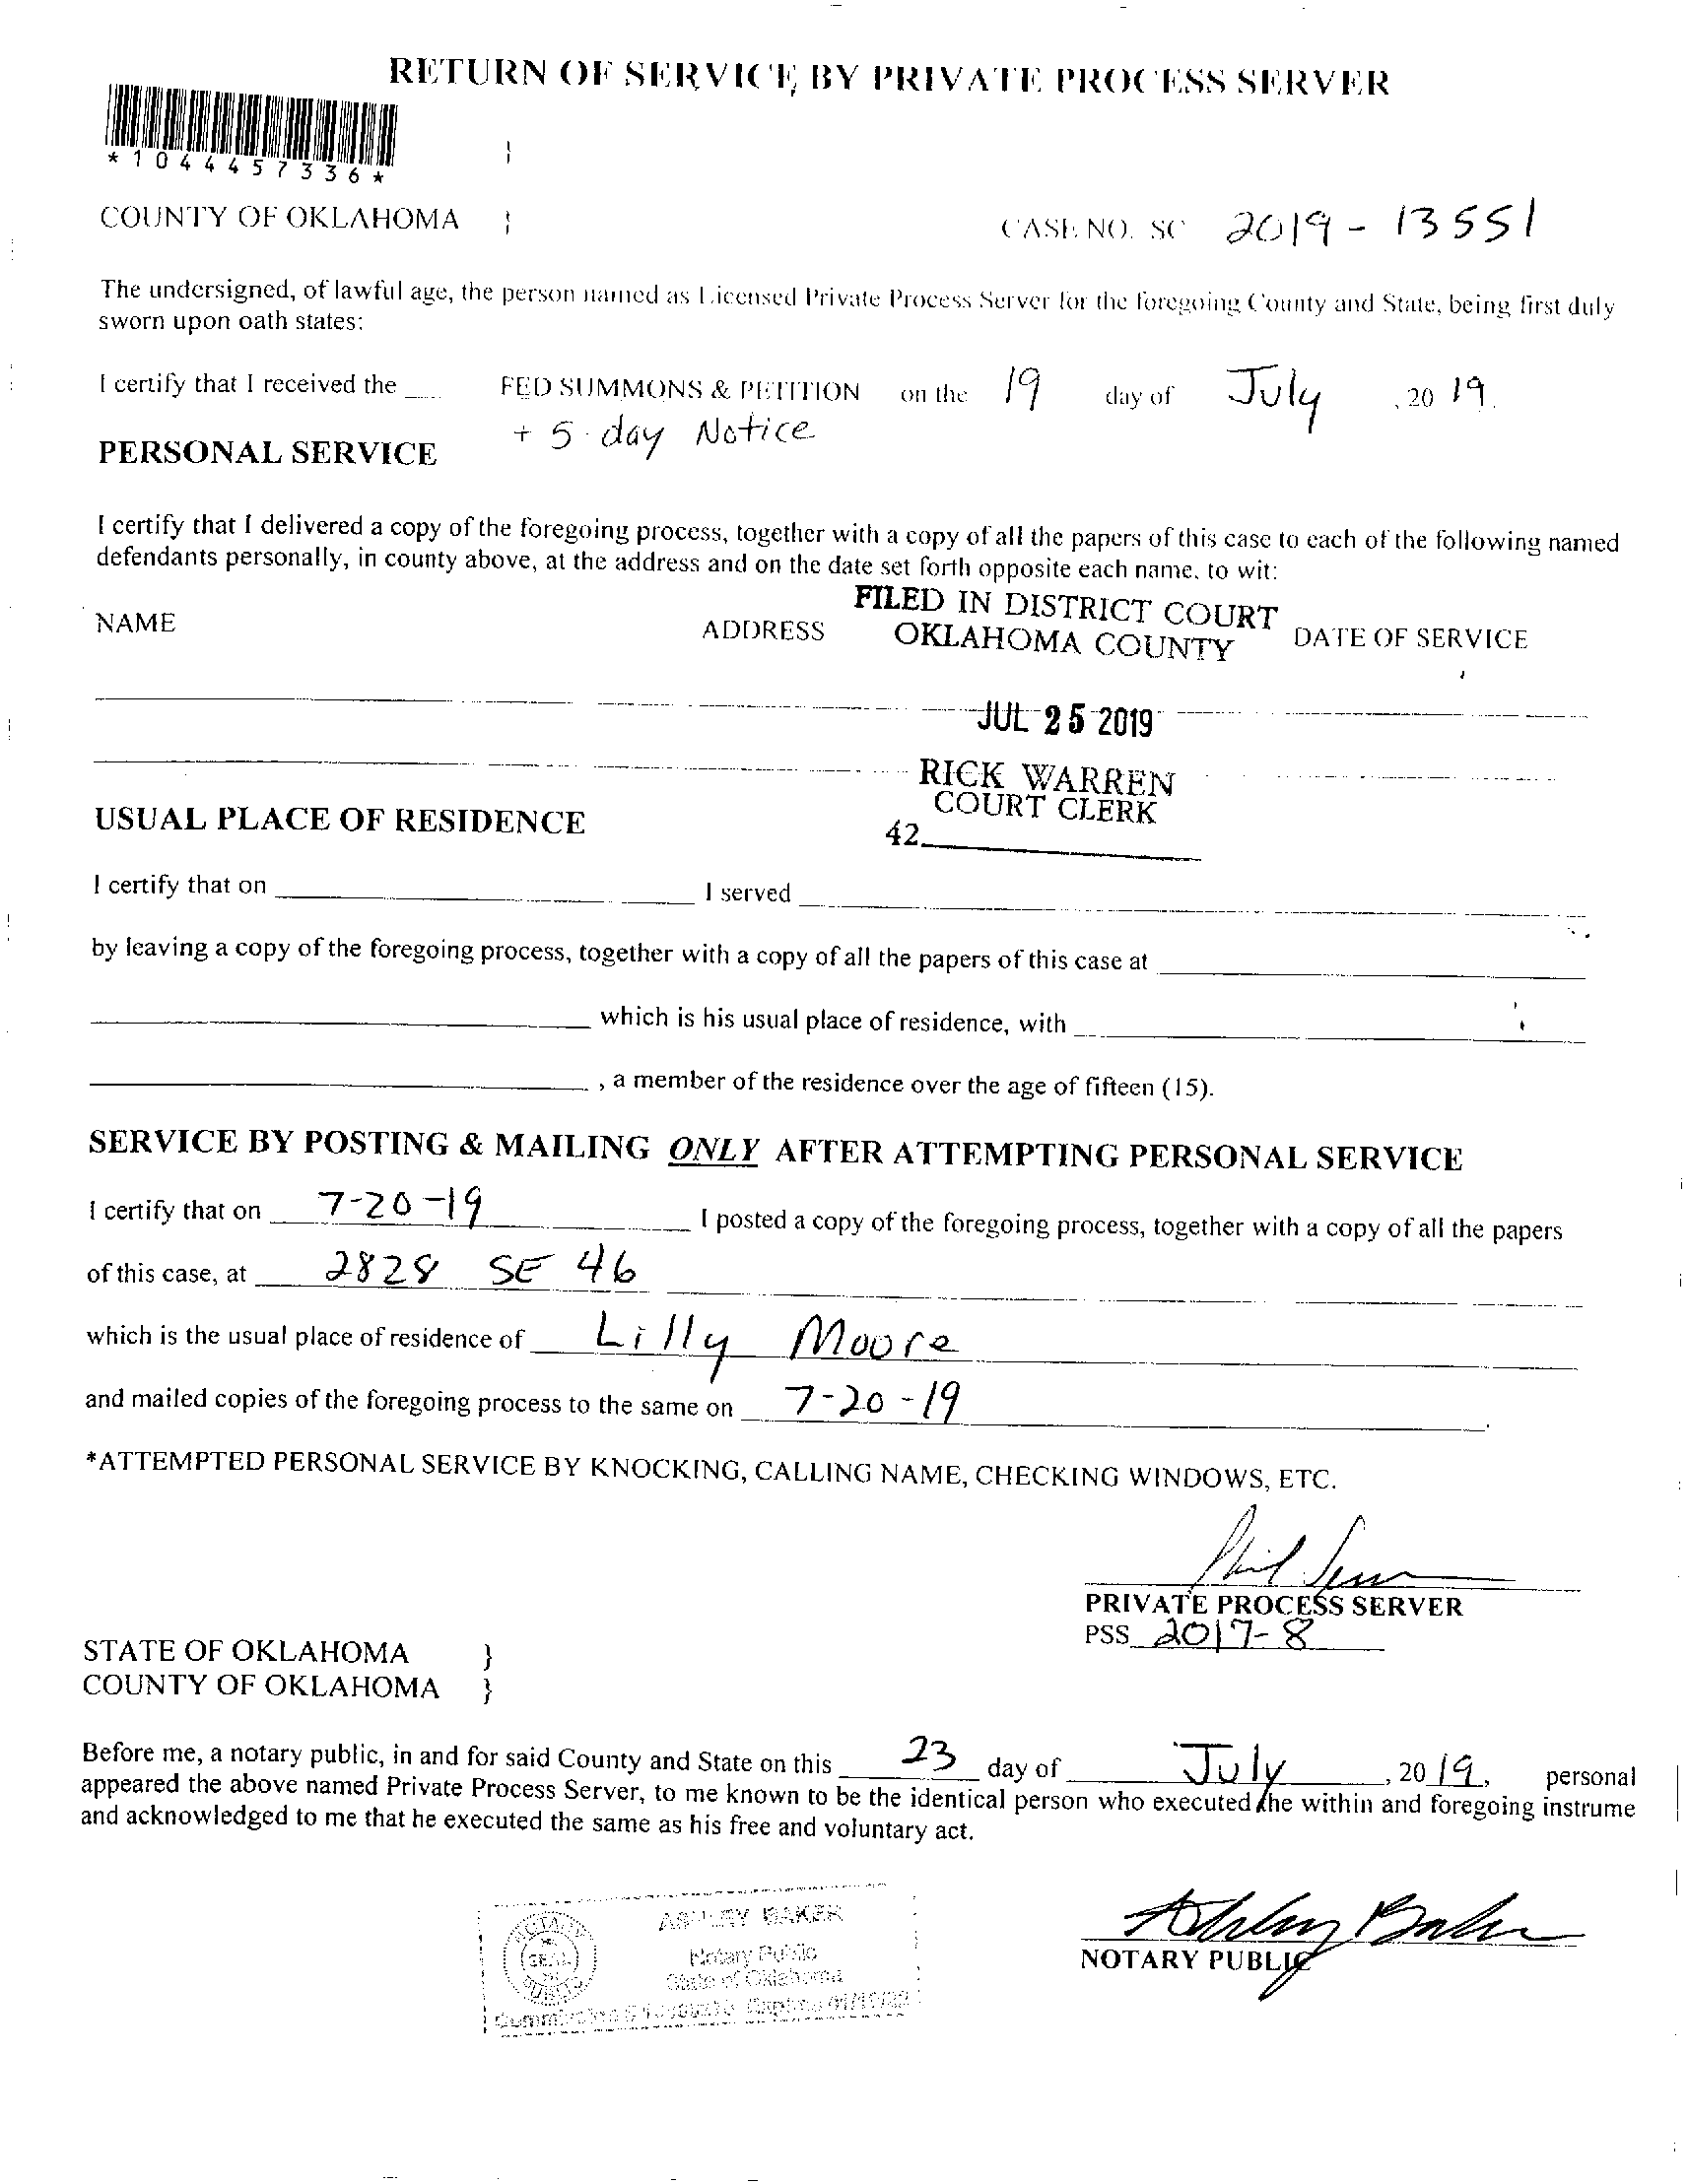 RETURN OF SERVICE BY PRIVATE PROCESS SERVER
*1044457336*
COUNTY OF OKLAHOMA } CASE NO. SC 2019-13551
The undersigned, of lawful age, the person named as Licensed Private Process Server for the foregoing County and State, being first duly
sworn upon oath states:
I certify that I received the FED SUMMONS & PETITION on the 19 day of July, 20 19.
+ 5-day Notice
PERSONAL SERVICE
I certify that I delivered a copy of the foregoing process, together with a copy of all the papers of this case to each of the following named
defendants personally, in county above, at the address and on the date set forth opposite each name, to wit:
FILED IN DISTRICT COURT
OKLAHOMA COUNTY
NAME ADDRESS DATE OF SERVICE
JUL 25 2019
RICK WARREN
COURT CLERK
42
USUAL PLACE OF RESIDENCE
I certify that on I served
by leaving a copy of the foregoing process, together with a copy of all the papers of this case at
which is his usual place of residence, with
, a member of the residence over the age of fifteen (15).
SERVICE BY POSTING & MAILING ONLY AFTER ATTEMPTING PERSONAL SERVICE
I certify that on 7-20-19 I posted a copy of the foregoing process, together with a copy of all the papers
of this case, at 2828 SE 46
which is the usual place of residence of Lilly Moore
and mailed copies of the foregoing process to the same on 7-20-19.
*ATTEMPTED PERSONAL SERVICE BY KNOCKING, CALLING NAME, CHECKING WINDOWS, ETC.
PRIVATE PROCESS SERVER
PSS 2017-8
STATE OF OKLAHOMA }
COUNTY OF OKLAHOMA }
Before me, a notary public, in and for said County and State on this 23 day of July, 20 19, personal
appeared the above named Private Process Server, to me known to be the identical person who executed the within and foregoing instrume
and acknowledged to me that he executed the same as his free and voluntary act.
ASHLEY BAKER
Notary Public
State of Oklahoma
Ashley Baker
NOTARY PUBLIC